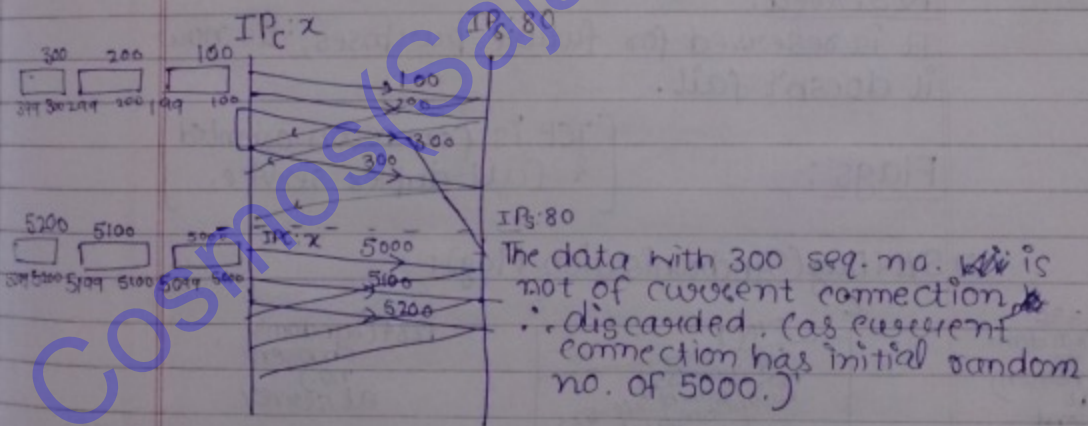 IPc:x IPs:80
300 200 100
399 300 299 200 199 100
100
200
300
300
IPs:80
5200 5100
IPc:x 5000
5199 5100 5099 5000
5100
5200
The data with 300 seq. no. is
not of current connection
∴ discarded. (as current
connection has initial random
no. of 5000.)
Cosmos(Saj